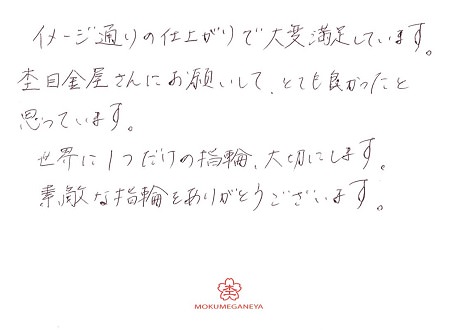 イメージ通りの仕上がりで大変満足しています。
杢目金屋さんにお願いして、とても良かったと
思っています。
世界に1つだけの指輪、大切にします。
素敵な指輪をありがとうございます。
杢
MOKUMEGANEYA